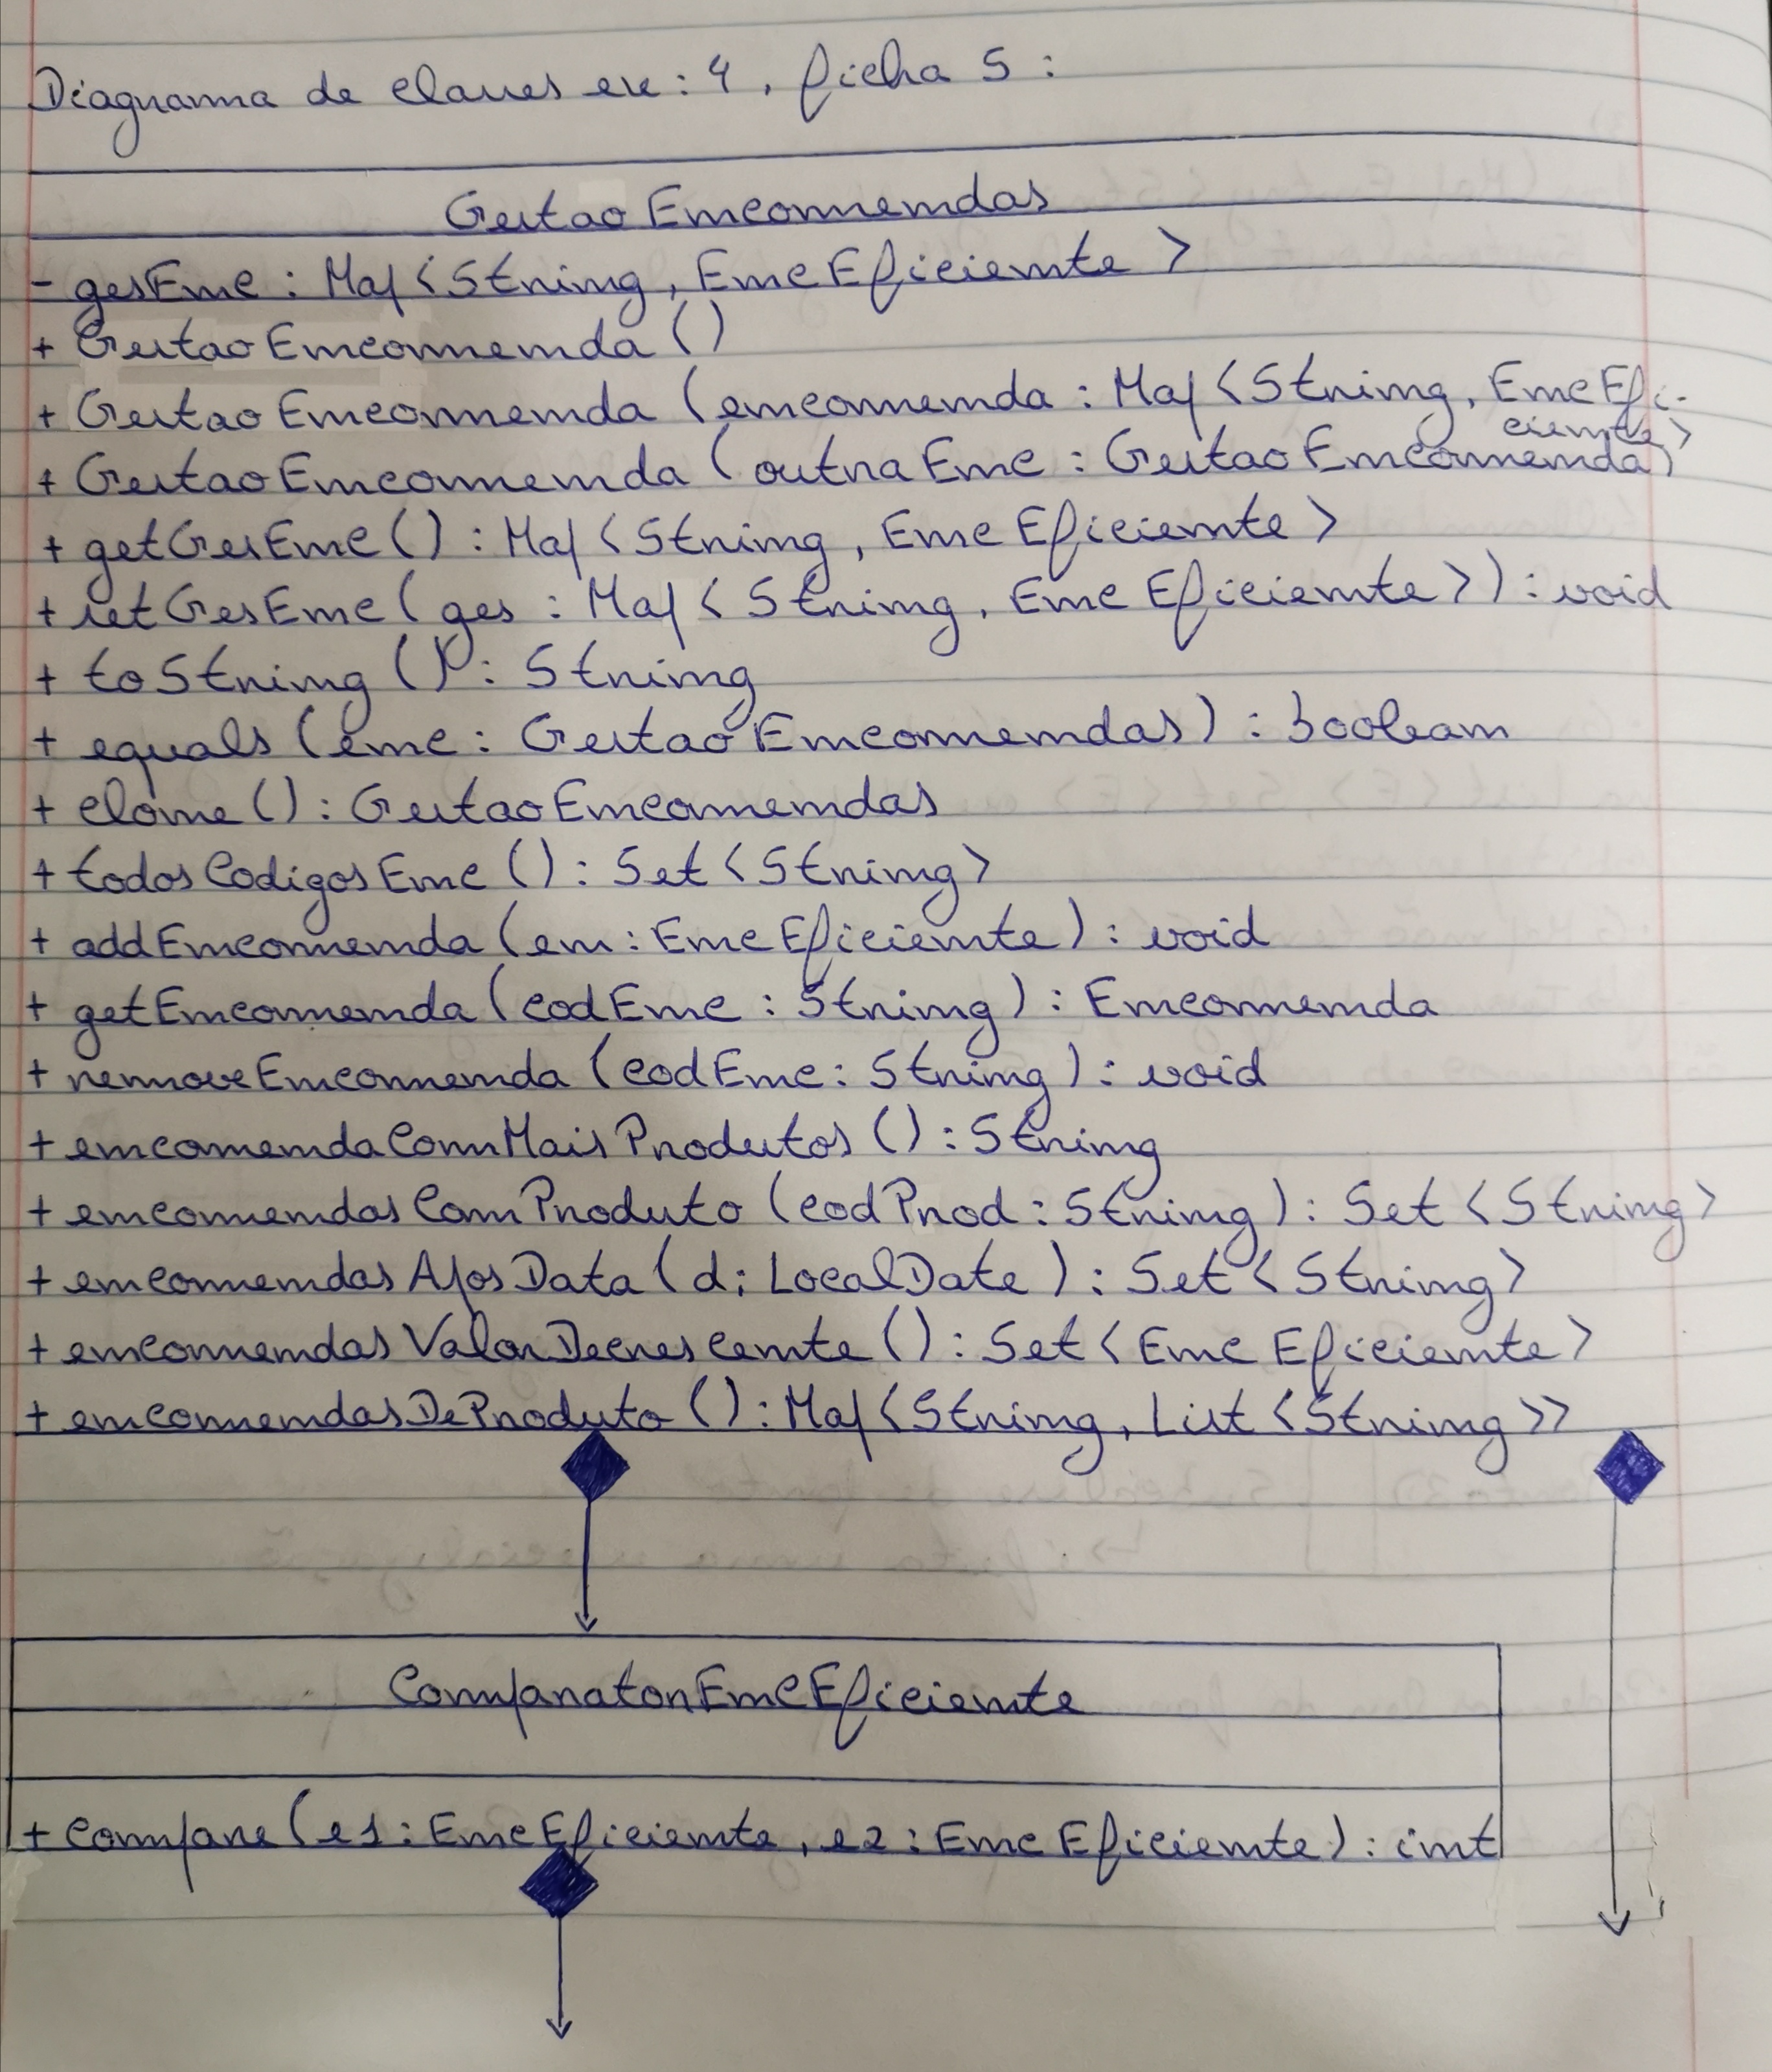 Diagrama de classes ex: 4, ficha 5:
GestaoEncomendas
- gesEnc: Map<String, EncEficiente>
+ GestaoEncomenda()
+ GestaoEncomenda (encomenda: Map<String, EncEfi-
ciente>
+ GestaoEncomenda (outraEnc: GestaoEncomenda)
+ getGesEnc(): Map<String, EncEficiente>
+ setGesEnc(ges: Map<String, EncEficiente>): void
+ toString(): String
+ equals (enc: GestaoEncomendas): boolean
+ clone(): GestaoEncomendas
+ todosCodigosEnc(): Set<String>
+ addEncomenda (en: EncEficiente): void
+ getEncomenda (codEnc: String): Encomenda
+ removeEncomenda (codEnc: String): void
+ encomendaComMaisProdutos(): String
+ encomendasComProduto (codProd: String): Set<String>
+ encomendasAposData (d: LocalDate): Set<String>
+ encomendasValorDecrescente(): Set<EncEficiente>
+ encomendasDeProduto(): Map<String, List<String>>
ComparatorEncEficiente
+ compare (e1: EncEficiente, e2: EncEficiente): int